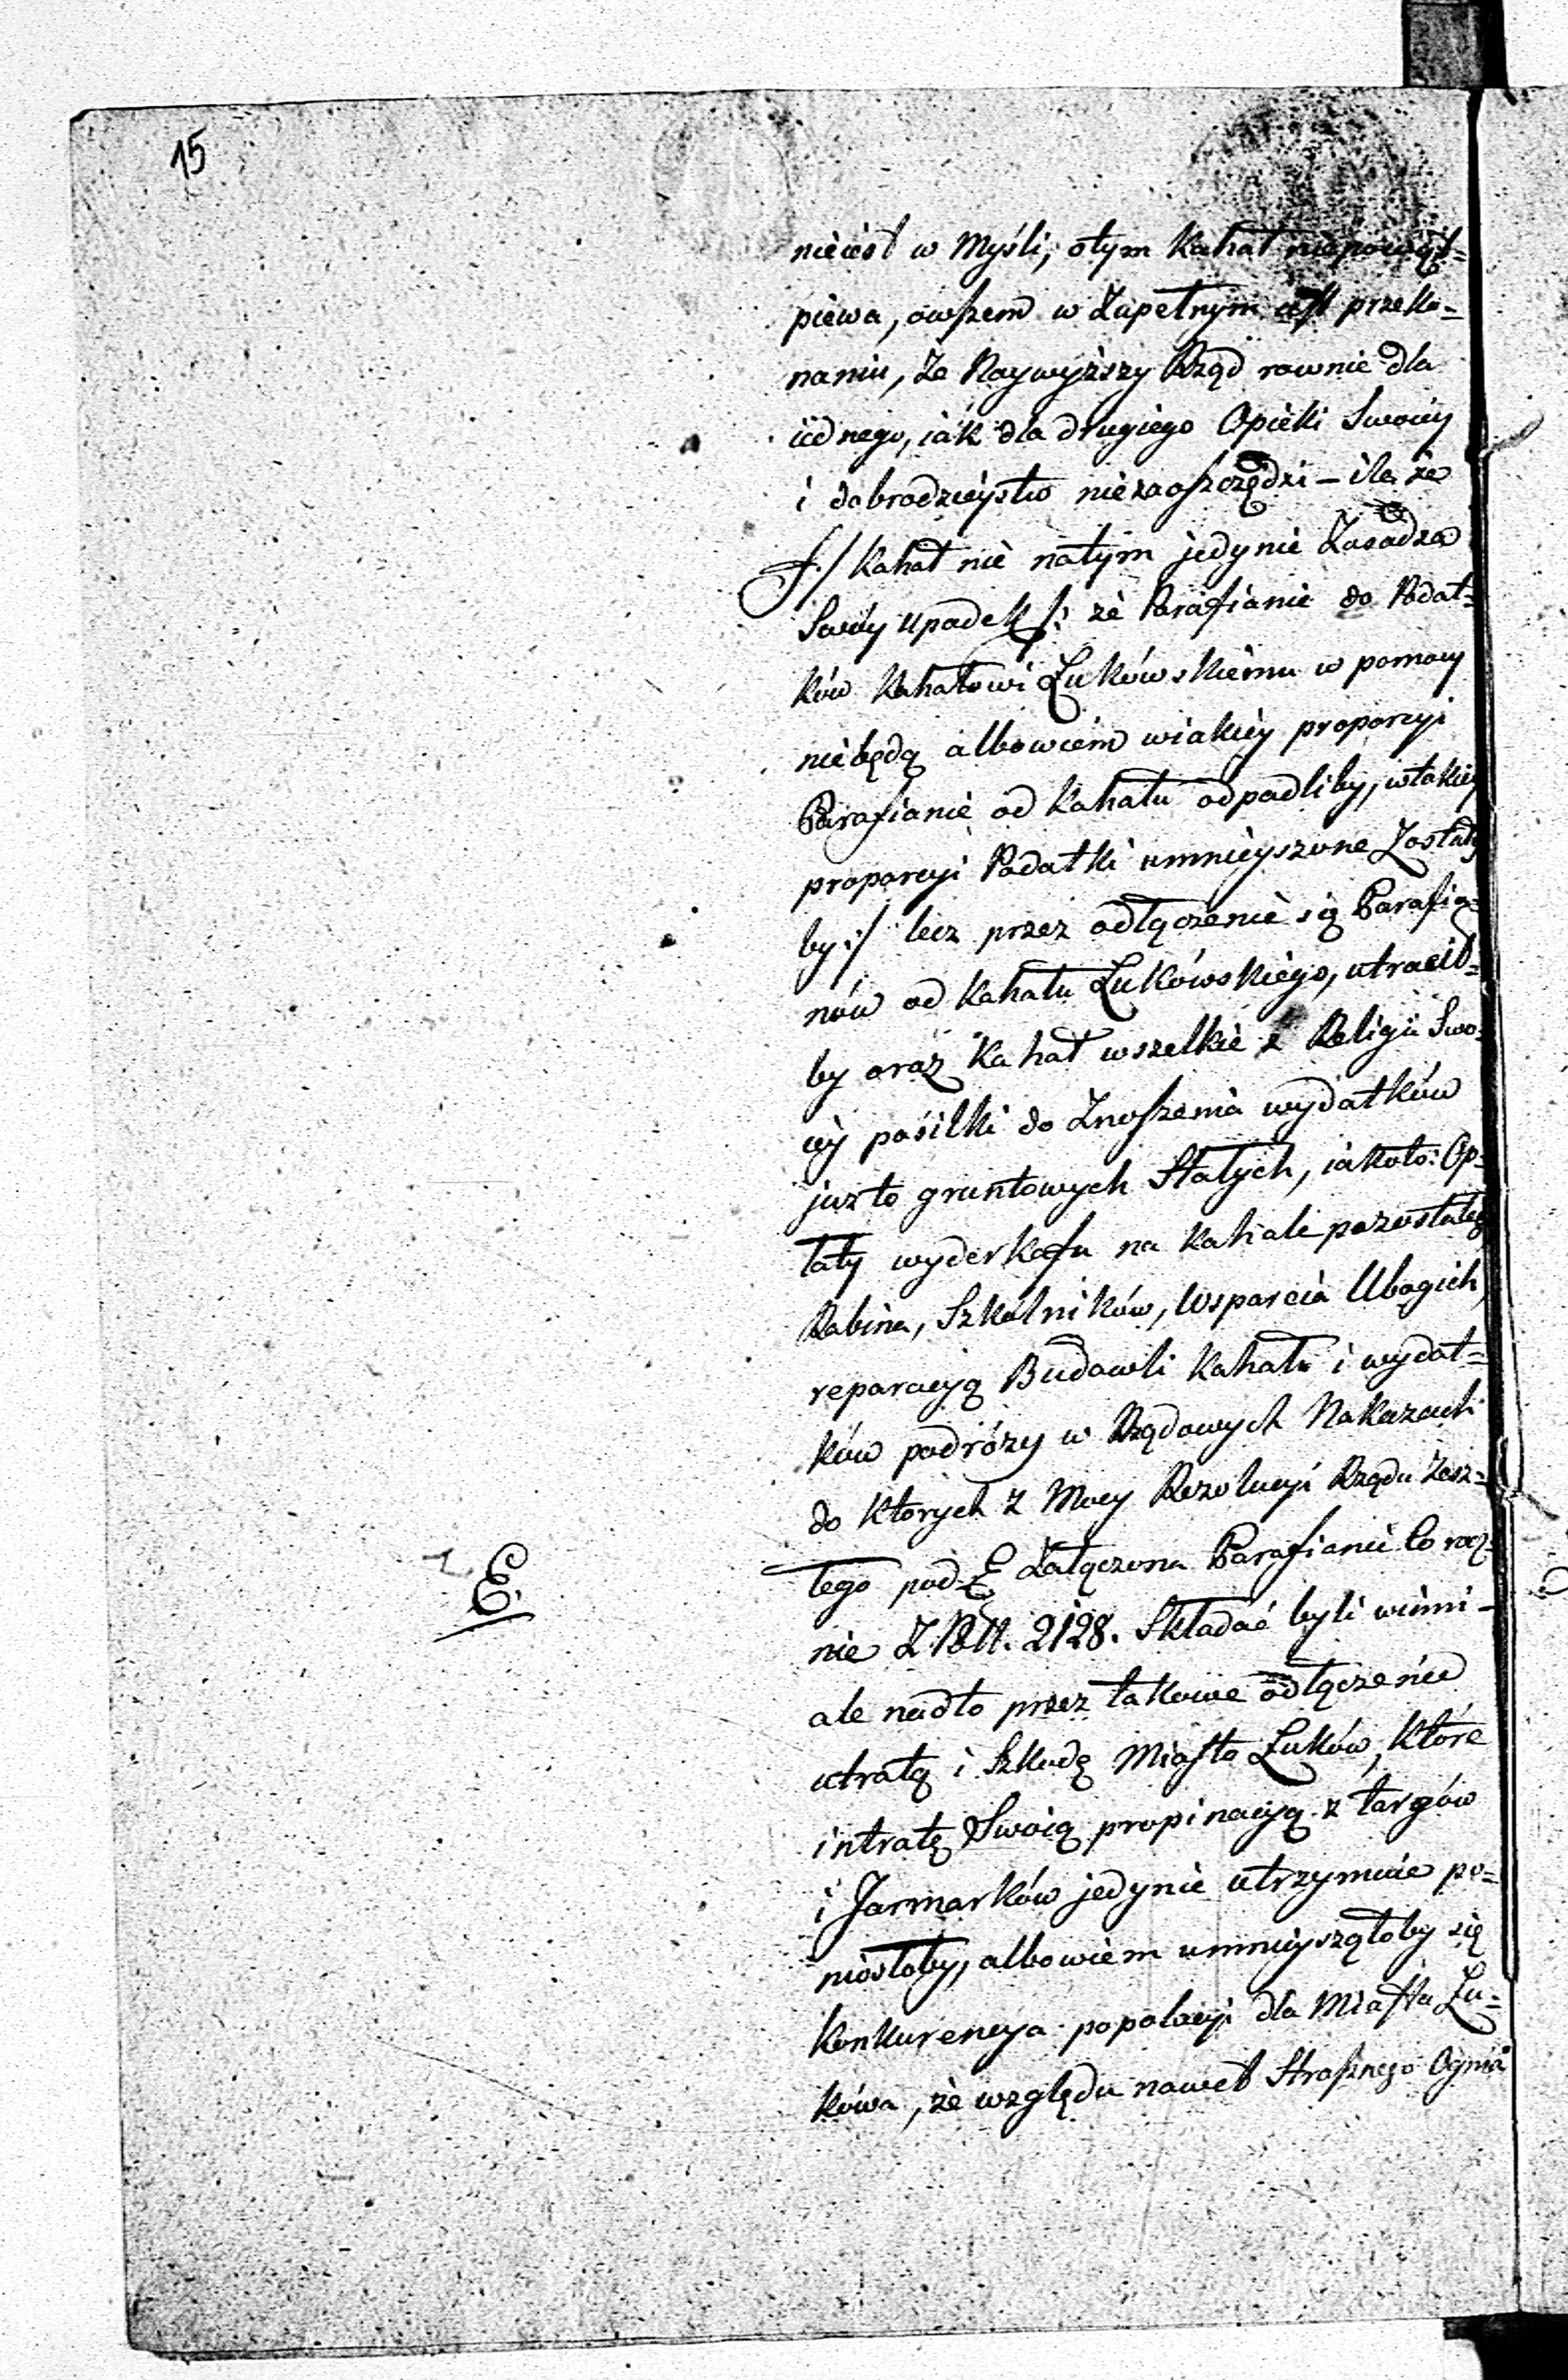 15
nieiest w Myśli, otym Kahał niepowąt=
piewa, owszem w Zupełnym iest przeko=
naniu, że Naywyższy Rząd rownie dla
iednego, iak dla drugiego Opieki Swoiey
i dobrodzieystw niezaoszczędzi – ile że
f./ Kahał nie natym jedynie Zasadza
Swóy upadek /: że Parafianie do Podat=
ków Kahałowi Łukówskiemu w pomocy
niebędą albowiem wiakiey proporcyi
Parafianie od Kahału odpadliby, wtakiey
proporcyi Podatki umnieyszone Zostały
by :/ lecz przez odłączenie się Parafia=
nów od Kahału Łukówskiego, utracił=
by oraz Kahał wszelkie z Religii Swo=
iey posiłki do Znoszenia wydatków
już to gruntowych Stałych, iakoto: Op=
łaty wyderkafu na Kahale pozostałeg
Rabina, Szkolników, Wsparcia Ubogich,
reparacyą Budowli Kahału i wydat=
ków podróży w Rządowych Nakazach
do Których z Mocy Rezolucyi Rządu Zesz=
łego pod E Załączona Parafianie Co rocz=
E.
nie Z. Poll. 2128. Składać byli winni –
ale nadto przez takowe odłączenie
utratę i Szkodę Miasto Łuków, Które
intratę Swoią propinacyą z targów
i Jarmarków jedynie utrzymuie po=
niosłoby, albowiem umnieyszałoby się
Konkurencya popolacyi dla Miasta Łu=
kówa, że względu nawet Strasznego Ognia